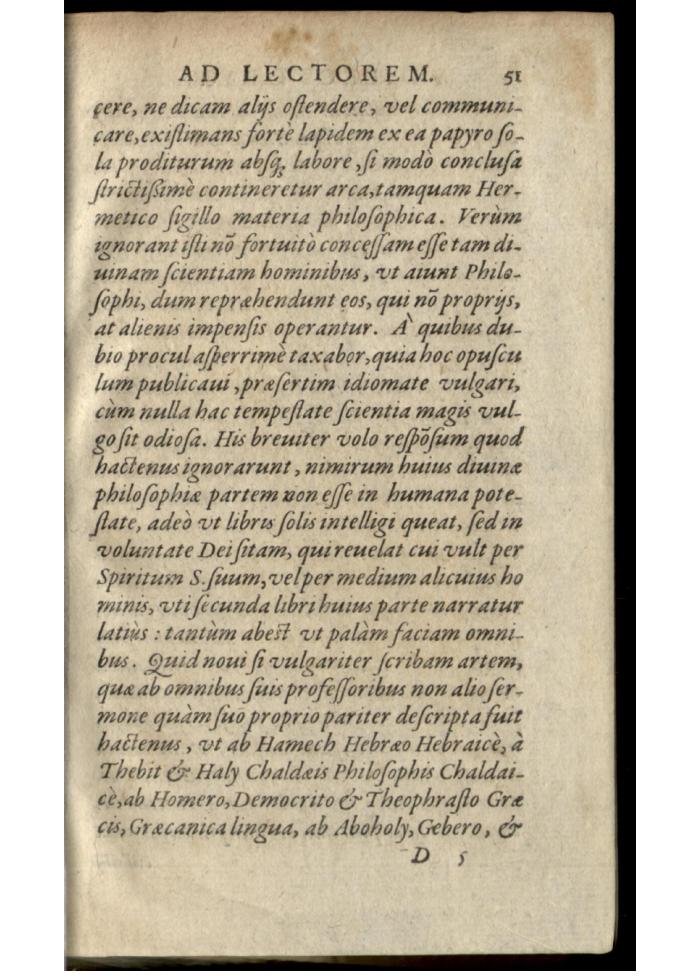 AD LECTOREM. 51
cere, ne dicam alijs oſtendere, vel communi-
care, exiſtimans fortè lapidem ex ea papyro ſo-
la proditurum abſq; labore, ſi modò concluſa
ſtrictißimè contineretur arca, tamquam Her-
metico ſigillo materia philoſophica. Verùm
ignorant iſti nõ fortuitò conceſſam eſſe tam di-
uinam ſcientiam hominibus, vt aiunt Philo-
ſophi, dum repræhendunt eos, qui nõ proprijs,
at alienis impenſis operantur. A` quibus du-
bio procul aſperrimè taxabor, quia hoc opuſcu
lum publicaui, præſertim idiomate vulgari,
cùm nulla hac tempeſtate ſcientia magis vul-
go ſit odioſa. His breuiter volo reſpõſum quod
hactenus ignorarunt, nimirum huius diuinæ
philoſophiæ partem non eſſe in humana pote-
ſtate, adeò vt libris ſolis intelligi queat, ſed in
voluntate Dei ſitam, qui reuelat cui vult per
Spiritum S. ſuum, vel per medium alicuius ho
minis, vti ſecunda libri huius parte narratur
latiùs : tantùm abeſt vt palàm faciam omni-
bus. Quid noui ſi vulgariter ſcribam artem,
quæ ab omnibus ſuis profeſſoribus non alio ſer-
mone quàm ſuo proprio pariter deſcripta fuit
hactenus, vt ab Hamech Hebræo Hebraicè, à
Thebit & Haly Chaldæis Philoſophis Chaldai-
cè, ab Homero, Democrito & Theophraſto Græ
cis, Græcanica lingua, ab Aboholy, Gebero, &
D 5